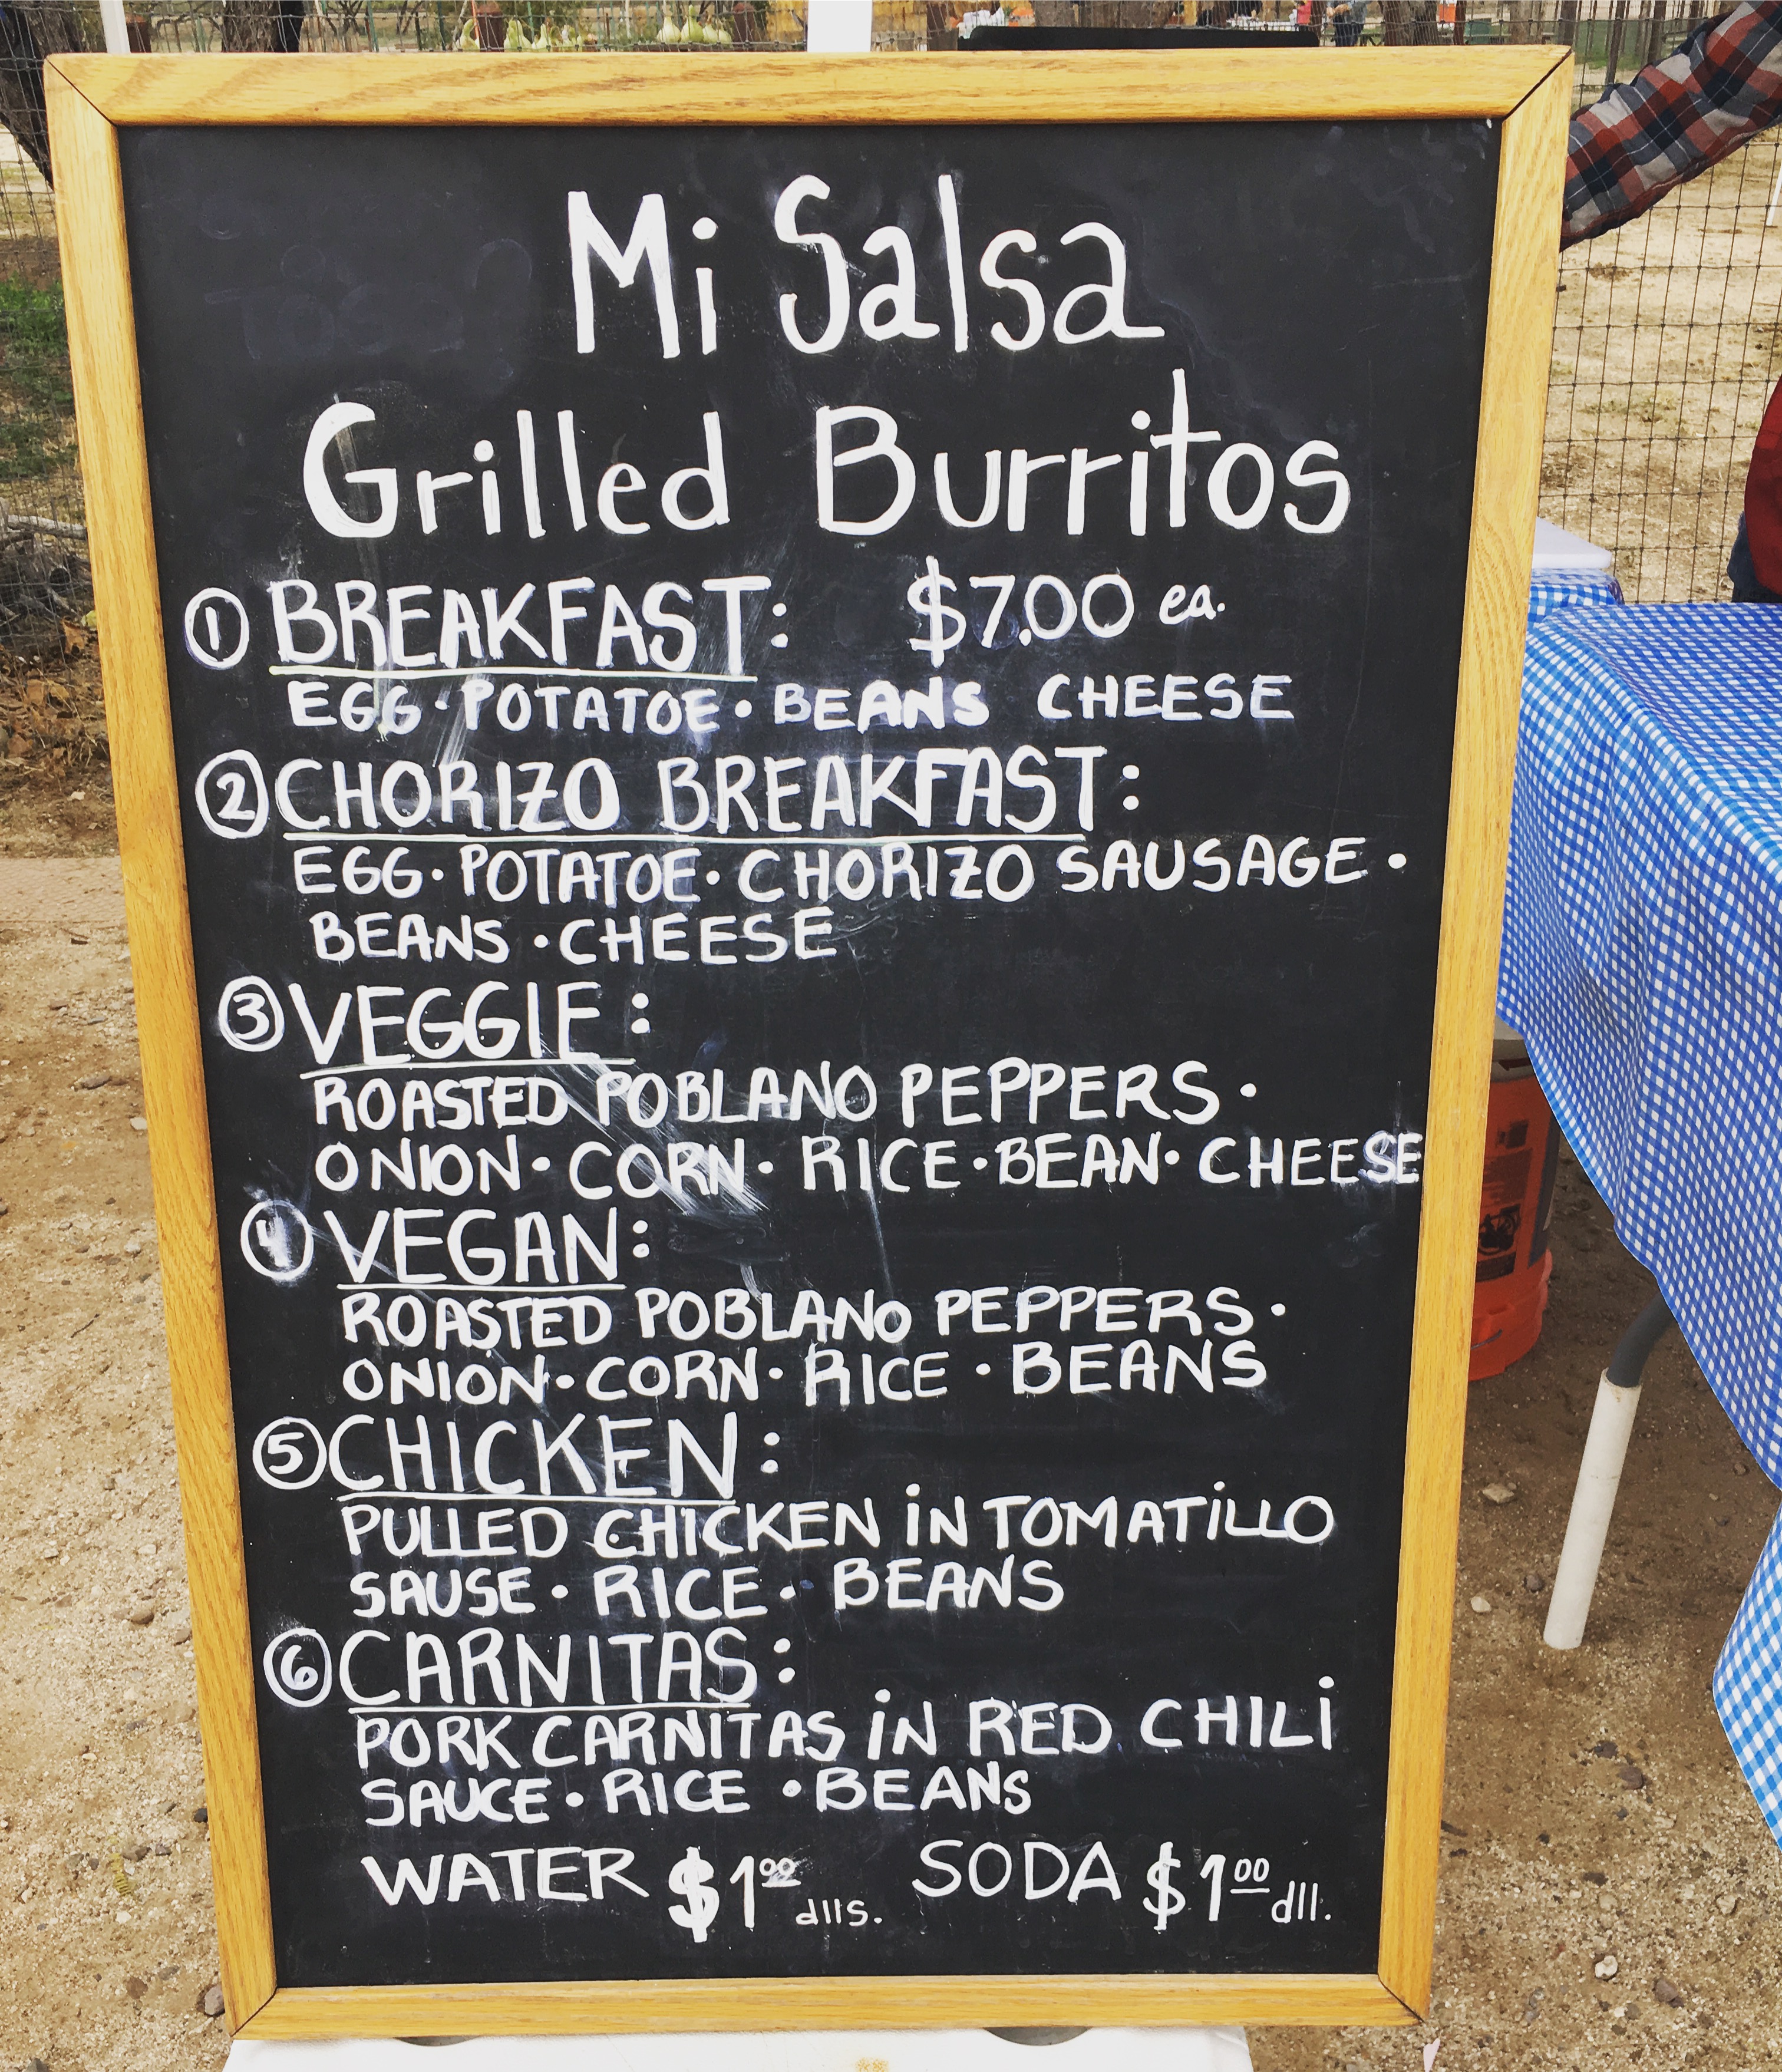 Mi Salsa
Grilled Burritos
① BREAKFAST: $7.00 ea.
EGG · POTATOE · BEANS CHEESE
② CHORIZO BREAKFAST:
EGG · POTATOE · CHORIZO SAUSAGE ·
BEANS · CHEESE
③ VEGGIE:
ROASTED POBLANO PEPPERS ·
ONION · CORN · RICE · BEAN · CHEESE
④ VEGAN:
ROASTED POBLANO PEPPERS ·
ONION · CORN · RICE · BEANS
⑤ CHICKEN:
PULLED CHICKEN iN TOMATiLLO
SAUSE · RICE · BEANS
⑥ CARNITAS:
PORK CARNITAS iN RED CHILi
SAUCE · RICE · BEANS
WATER $1.00 dlls. SODA $1.00 dll.